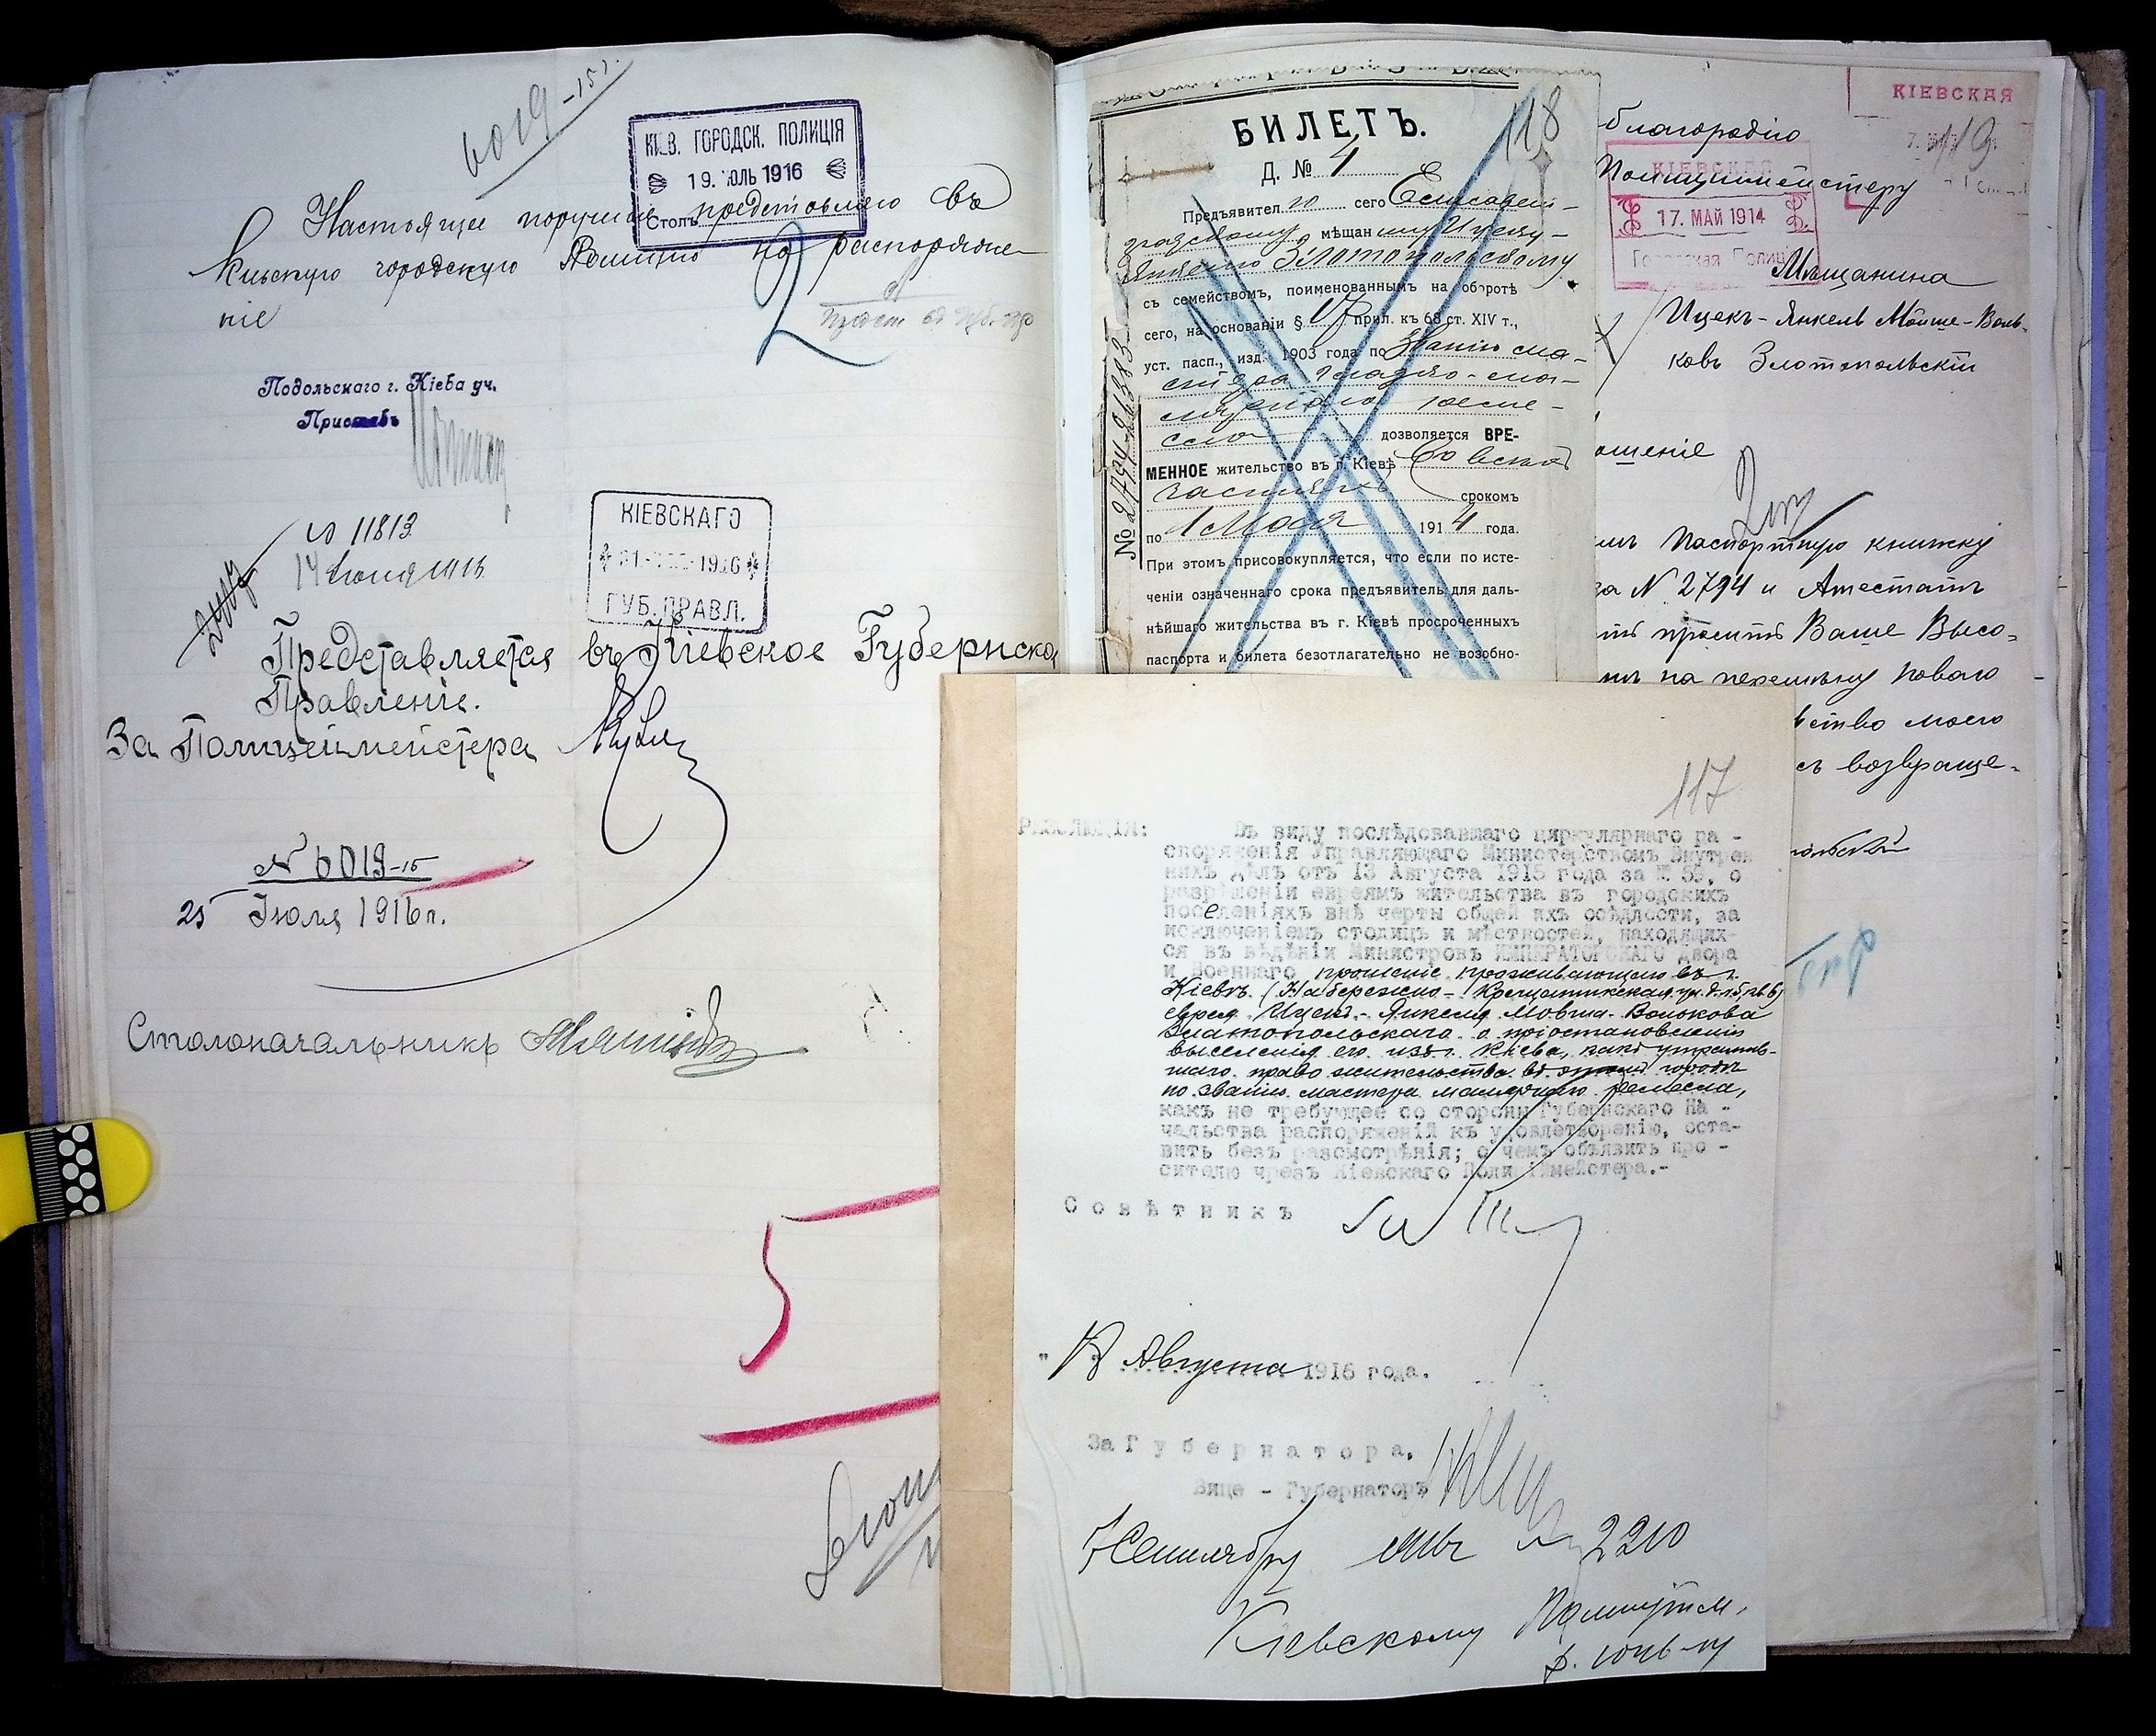 6019-15 г.
КІЕВ. ГОРОДСК. ПОЛИЦІЯ
19. ІЮЛЬ 1916
Столъ
Настоящее порученіе представляю въ
Кіевскую городскую Полицію на распоряже-
ніе
2
Подольскаго г. Кіева уч.
Приставъ
№ 11813
14 Іюля 1916
КІЕВСКАГО
1916
ГУБ. ПРАВЛ.
Представляется въ Кіевское Губернское
Правленіе.
За Полицеймейстера
№ 6019-15
25 Іюля 1916 г.
Столоначальникъ
5
118
БИЛЕТЪ.
Д. № 4
Предъявителю сего Елисавет-
градскому мѣщанину Ицеку-
Янкелю Златопольскому
съ семействомъ, поименованнымъ на оборотѣ
сего, на основаніи § 17 прил. къ 68 ст. XIV т.,
уст. пасп., изд. 1903 года по званію ма-
стера
ремес-
сла дозволяется ВРЕ-
МЕННОЕ жительство въ г. Кіевѣ во всѣхъ
частяхъ срокомъ
по 1 Мая 1914 года.
При этомъ присовокупляется, что если по исте-
ченіи означеннаго срока предъявитель для даль-
нѣйшаго жительства въ г. Кіевѣ просроченныхъ
паспорта и билета безотлагательно не возобно-
КІЕВСКАЯ
119
благородію
Полицимейстеру
КІЕВСКАЯ
17. МАЙ 1914
Городская Полиція
Мѣщанина
Ицекъ-Янкель Мойше-Воль-
ковъ Златопольскій
ошеніе
Паспортную книжку
за № 2794 и Атестатъ
просить Ваше Высо-
на перемѣну новаго
моего
возвраще-
117
РЕЗОЛЮЦІЯ: Въ виду послѣдовавшаго циркулярнаго ра -
споряженія Управляющаго Министерствомъ Внутрен
нихъ дѣлъ отъ 13 Августа 1915 года за № 39, о
разрѣшеніи евреямъ жительства въ городскихъ
поселеніяхъ внѣ черты общей ихъ осѣдлости, за
исключеніемъ столицъ и мѣстностей, находящих-
ся въ вѣдѣніи Министровъ ИМПЕРАТОРСКАГО двора
и Военнаго прошеніе проживающаго въ г.
Кіевѣ (Набережно-Крещатикская ул. д. № 5, кв. 6)
еврея Ицека-Янкеля Мовша-Волькова
Златопольскаго о пріостановленіи
выселенія его изъ г. Кіева, какъ утратив-
шаго право жительства въ этомъ городѣ
по званію мастера малярнаго ремесла,
какъ не требующее со стороны Губернскаго На -
чальства распоряженій къ удовлетворенію, оста-
вить безъ разсмотрѣнія; о чемъ объявить про -
сителю чрезъ Кіевскаго Полиціймейстера.-
Совѣтникъ
" 13 " Августа 1916 года.
За Губернатора,
Вице - Губернаторъ
7 Сентября 1916 г. № 2210
Кіевскому Полицейм.